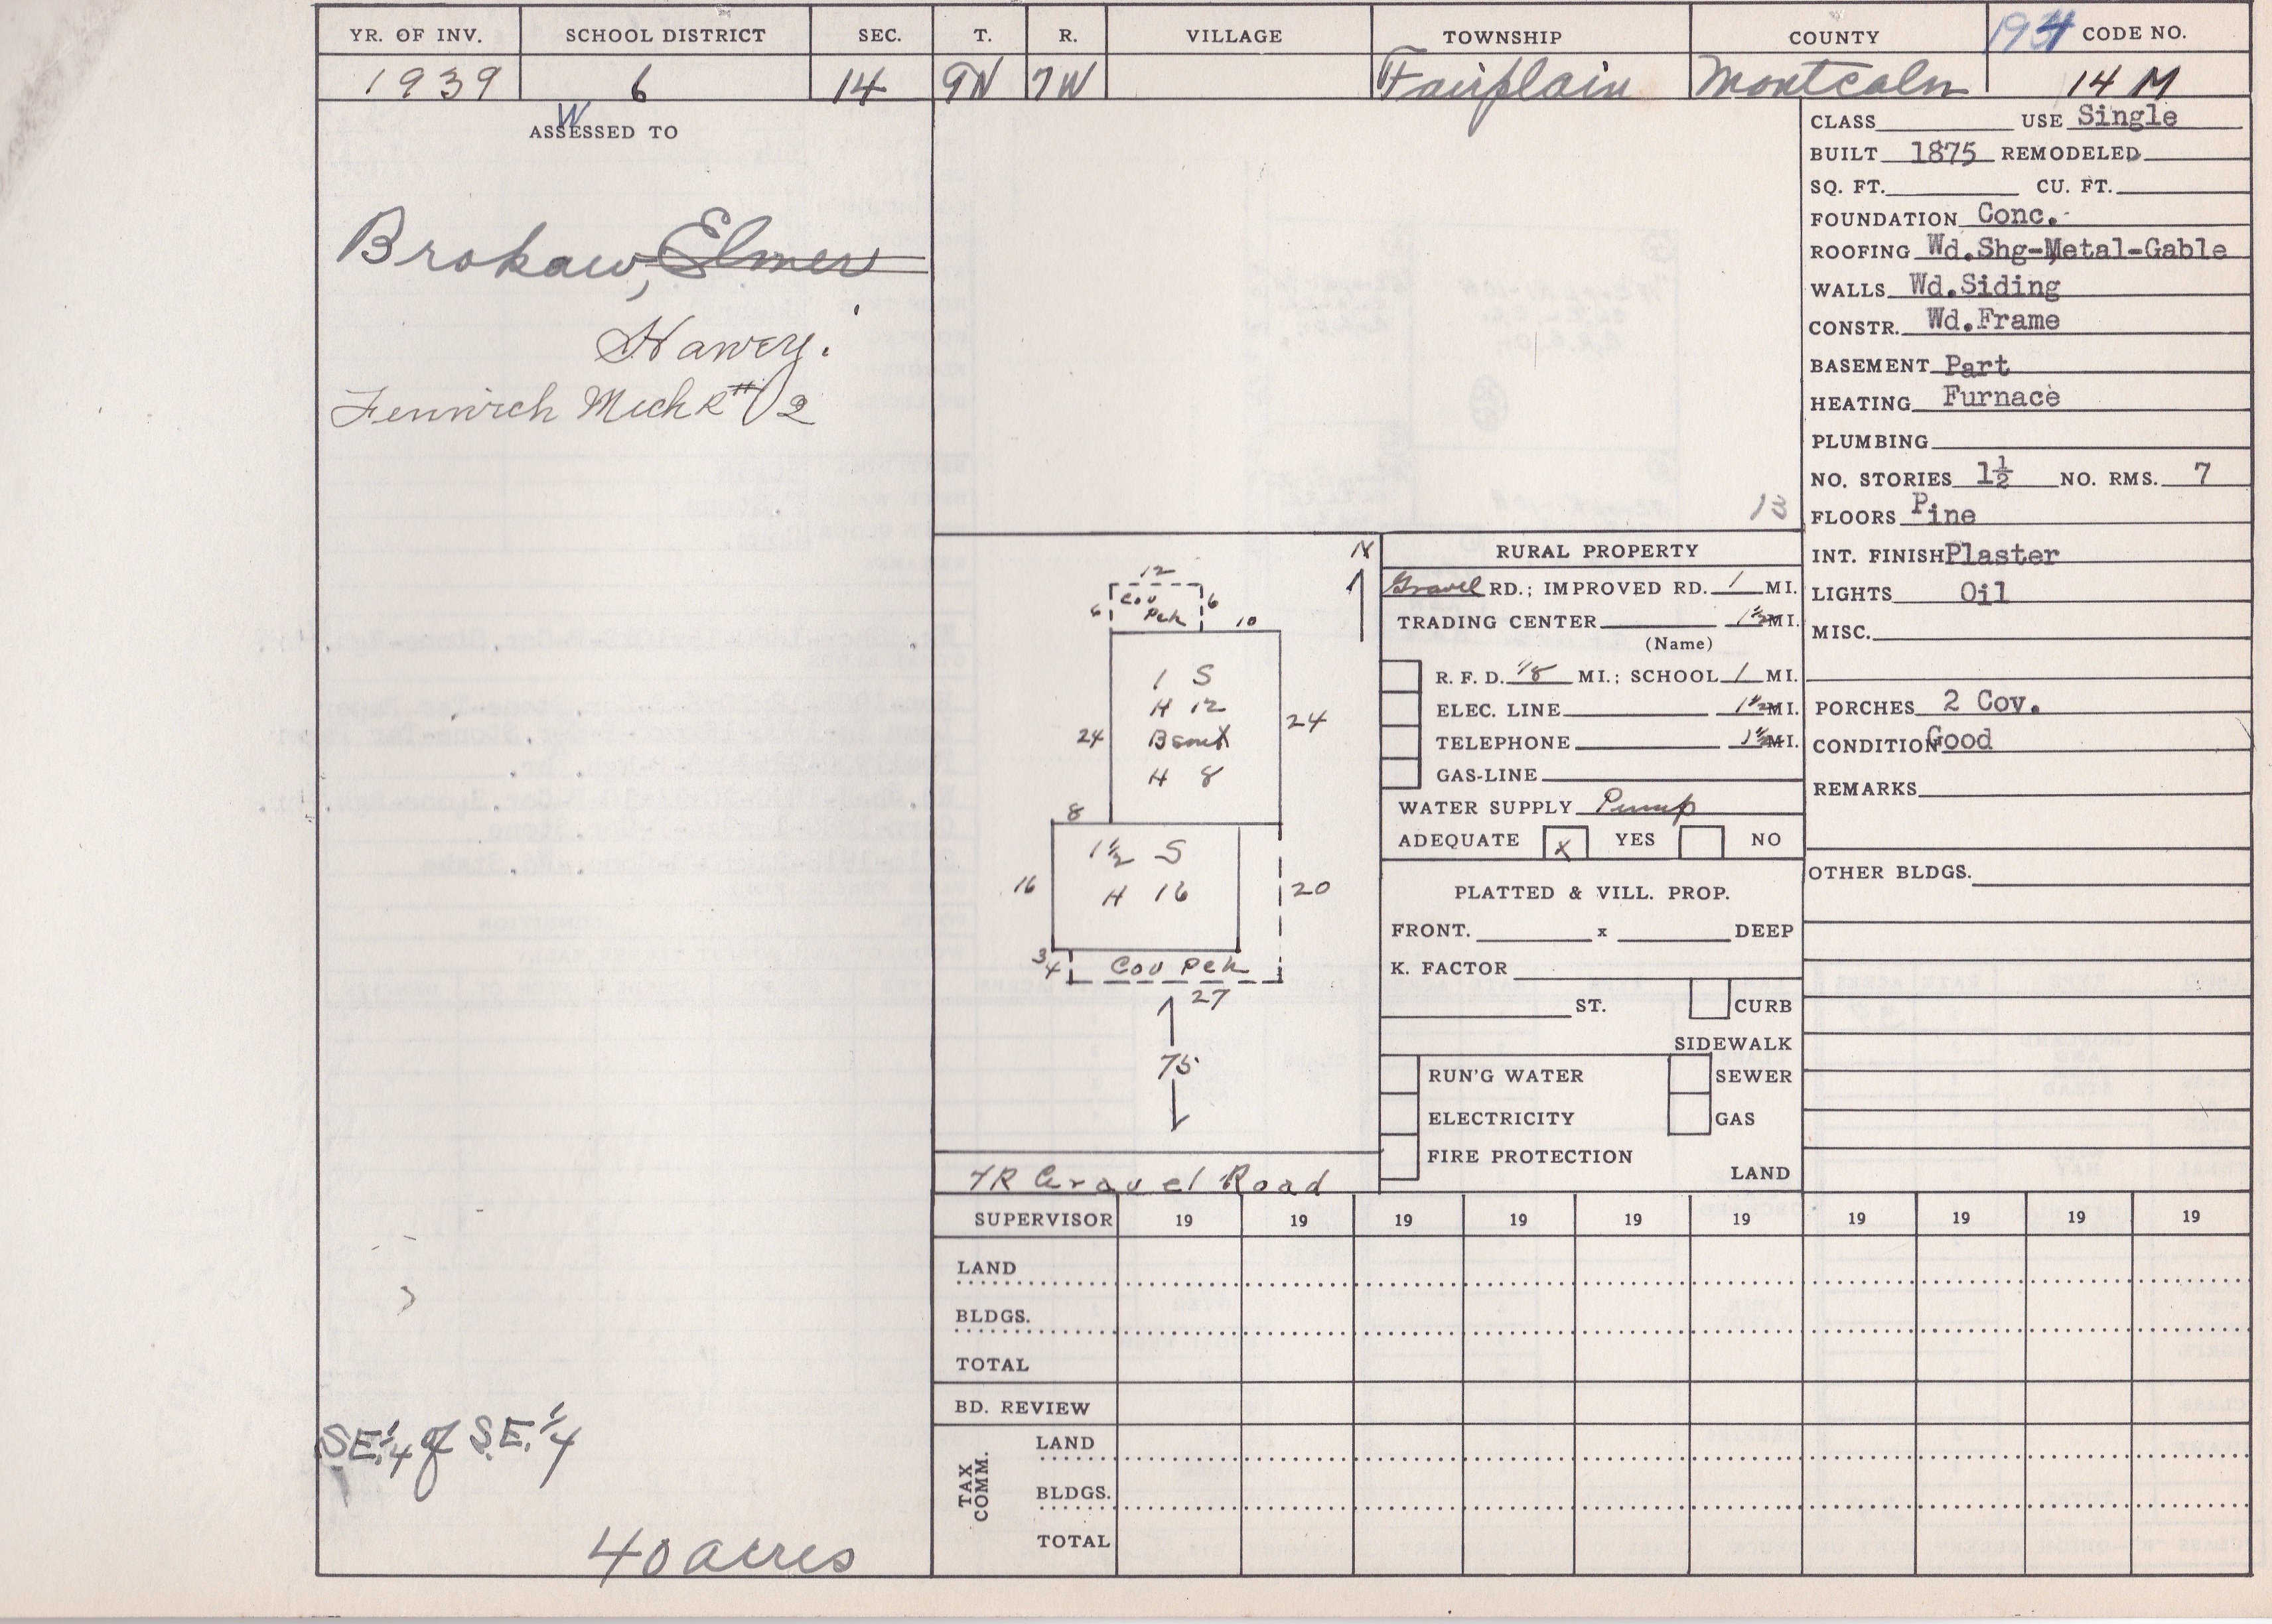 YR. OF INV. SCHOOL DISTRICT SEC. T. R. VILLAGE TOWNSHIP COUNTY CODE NO.
1939 6 14 9N 7W Fairplain Montcalm 14 M
W
ASSESSED TO
Brokaw, Elmer
Harvey.
Fenwick Mich R#2
SE 1/4 of S.E. 1/4
40 acres
13
N
12
6 Cov Pch 6
10
1 S
H 12
Bsmt
H 8
24 24
8
1 1/2 S
H 16
16 20
3
4 Cov Pch
27
75
TR Gravel Road
RURAL PROPERTY
Gravel RD.; IMPROVED RD. 1 MI.
TRADING CENTER 1 1/2 MI.
(Name)
R. F. D. 1/8 MI.; SCHOOL 1 MI.
ELEC. LINE 1 1/2 MI.
TELEPHONE 1 1/2 MI.
GAS-LINE
WATER SUPPLY Pump
ADEQUATE X YES NO
PLATTED & VILL. PROP.
FRONT. x DEEP
K. FACTOR
ST. CURB
SIDEWALK
RUN'G WATER SEWER
ELECTRICITY GAS
FIRE PROTECTION
LAND
CLASS USE Single
BUILT 1875 REMODELED
SQ. FT. CU. FT.
FOUNDATION Conc.
ROOFING Wd.Shg-Metal-Gable
WALLS Wd.Siding
CONSTR. Wd.Frame
BASEMENT Part
HEATING Furnace
PLUMBING
NO. STORIES 1½ NO. RMS. 7
FLOORS Pine
INT. FINISH Plaster
LIGHTS Oil
MISC.
PORCHES 2 Cov.
CONDITION Good
REMARKS
OTHER BLDGS.
SUPERVISOR 19 19 19 19 19 19 19 19 19 19
LAND
BLDGS.
TOTAL
BD. REVIEW
TAX COMM.
LAND
BLDGS.
TOTAL